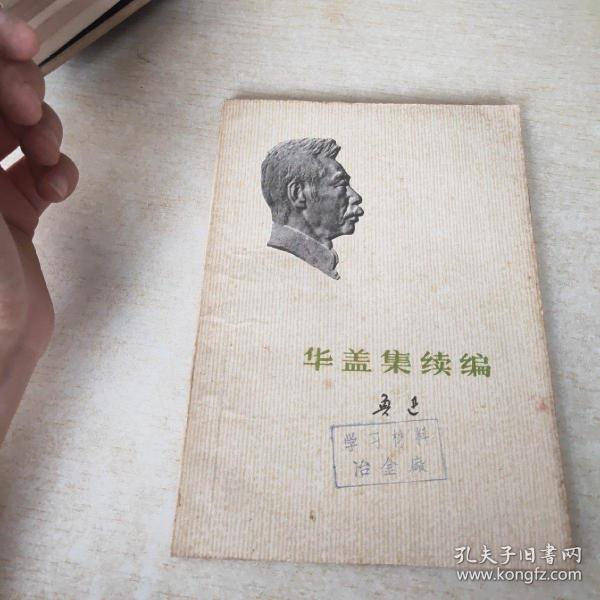 华盖集续编
鲁迅
学习材料
冶金厂
孔夫子旧书网
www.kongfz.com